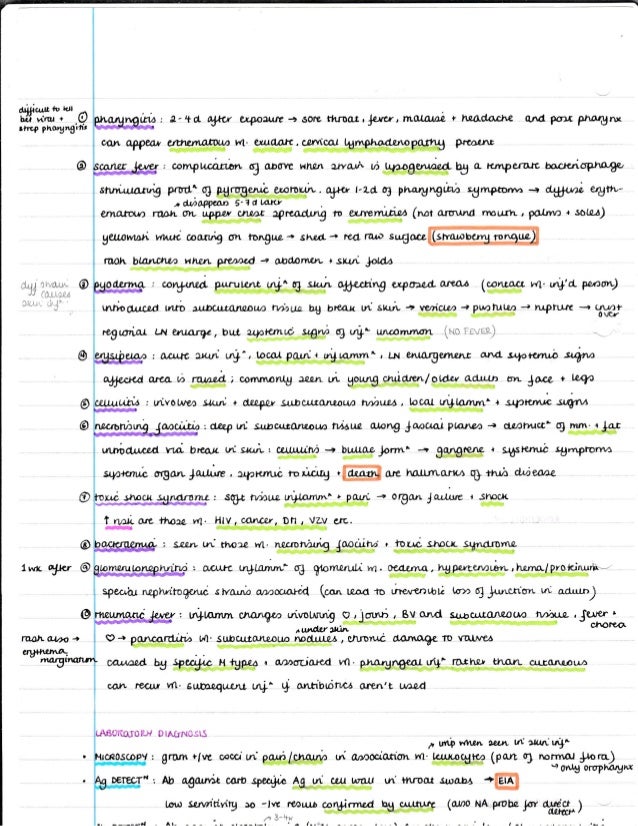 difficult to tell
bet virus +
strep pharyngitis
① pharyngitis : 2-4d after exposure → sore throat, fever, malaise + headache and post pharynx
can appear erthematous w. exudate, cervical lymphadenopathy present
② scarlet fever : complication of above when strain is lysogenised by a temperate bacteriophage
stimulating prodⁿ of pyrogenic exotoxin. after 1-2d of pharyngitis symptoms → diffuse eryth-
↗ disappears 5-7d later
ematous rash on upper chest spreading to extremities (not around mouth, palms + soles)
yellowish white coating on tongue → shed → red raw surface (strawberry tongue)
rash blanches when pressed → abdomen + skin folds
diff strain
causes
skin infⁿ
③ pyoderma : confined purulent infⁿ of skin affecting exposed areas (contact w. inf'd person)
introduced into subcutaneous tissue by break in skin → vesicles → pustules → rupture → crust
over
regional LN enlarge, but systemic signs of infⁿ uncommon (NO FEVER)
④ erysipelas : acute skin infⁿ, local pain + inflammⁿ, LN enlargement and systemic signs
affected area is raised ; commonly seen in young children/older adults on face + legs
⑤ cellulitis : involves skin + deeper subcutaneous tissues, local inflammⁿ + systemic signs
⑥ necrotising fasciitis : deep in subcutaneous tissue along fascial planes → destructⁿ of mm. + fat
introduced via break in skin : cellulitis → bullae formⁿ → gangrene + systemic symptoms
systemic organ failure, systemic toxicity + death are hallmarks of this disease
⑦ toxic shock syndrome : soft tissue inflammⁿ + pain → organ failure + shock
↑ risk are those w. HIV, cancer, DM, VZV etc.
⑧ bacteraemia : seen in those w. necrotising fasciitis + toxic shock syndrome
1 wk after
⑨ glomerulonephritis : acute inflammⁿ of glomeruli w. oedema, hypertension, hema/proteinuria
special nephritogenic strains associated (can lead to irreversible loss of function in adults)
⑩ rheumatic fever : inflamm changes involving ♡, joints, BV and subcutaneous tissue, fever +
chorea
↗ under skin
rash also →
erythema
marginatum
♡ → pancarditis w. subcutaneous nodules, chronic damage to valves
caused by specific M types + associated w. pharyngeal infⁿ rather than cutaneous
can recur w. subsequent infⁿ if antibiotics aren't used
LABORATORY DIAGNOSIS
↗ imp when seen in skin infⁿ
• MICROSCOPY : gram +/ve cocci in pairs/chains in association w. leukocytes (part of normal flora)
↳ only oropharynx
• Ag DETECTⁿ : Ab against carb specific Ag in cell wall in throat swabs → EIA
low sensitivity so -ive results confirmed by culture (also NA probe for direct
detectⁿ)